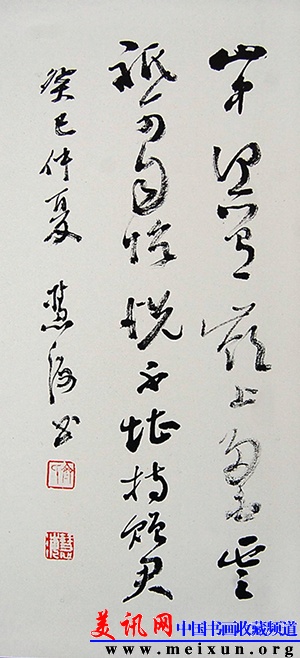 山中何所有嶺上多白雲
祇可自怡悦不堪持贈君
癸巳仲夏 慧 书
美讯网 中国书画收藏频道
www.meixun.org